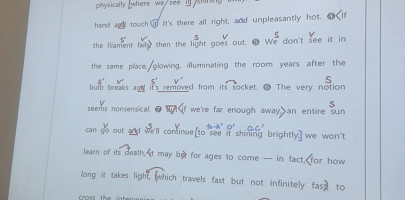 physically [where we see it/
hand and touch it. It's there all right, and unpleasantly hot. ❶<If
the filament fails> then the light goes out. ❷ We don't see it in
the same place, glowing, illuminating the room years after the
bulb breaks and it's removed from its socket. The very notion
seems nonsensical. But <if we're far enough away> an entire sun
can go out and we'll continue [to see it shining brightly;] we won't
learn of its death, it may be for ages to come — in fact, <for how
long it takes light, (which travels fast but not infinitely fast) to
cross the